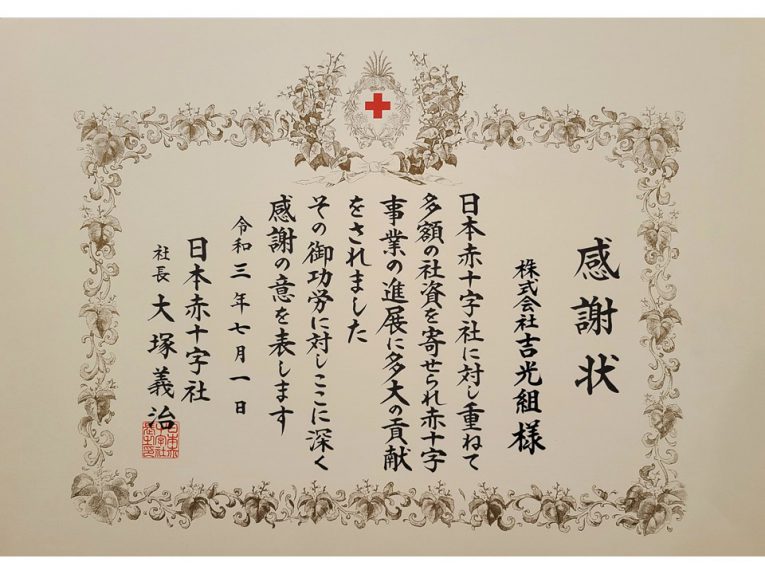 感謝状
株式会社吉光組様
日本赤十字社に対し重ねて
多額の社資を寄せられ赤十字
事業の進展に多大の貢献
をされました
その御功労に対しここに深く
感謝の意を表します
令和三年七月一日
日本赤十字社
社長 大塚義治